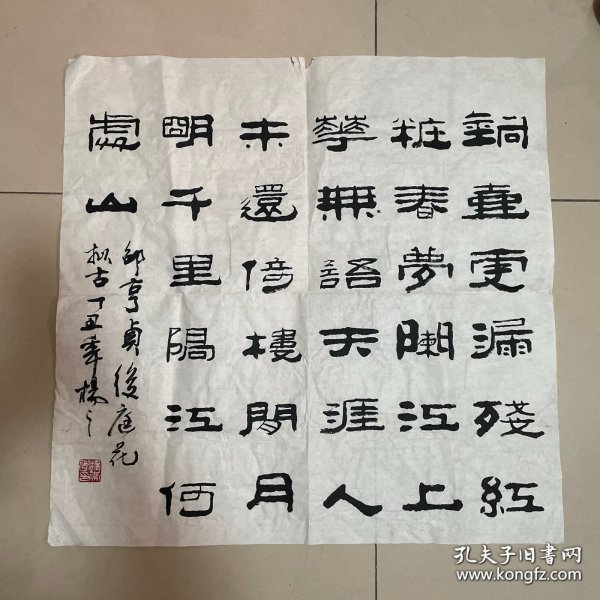 銅壺更漏殘紅
粧春夢闌江上
華無語天涯人
未還倚樓閒月
明千里隔江何
處山
邵亨貞後庭花
拟古丁丑年楊
孔夫子旧书网
www.kongfz.com